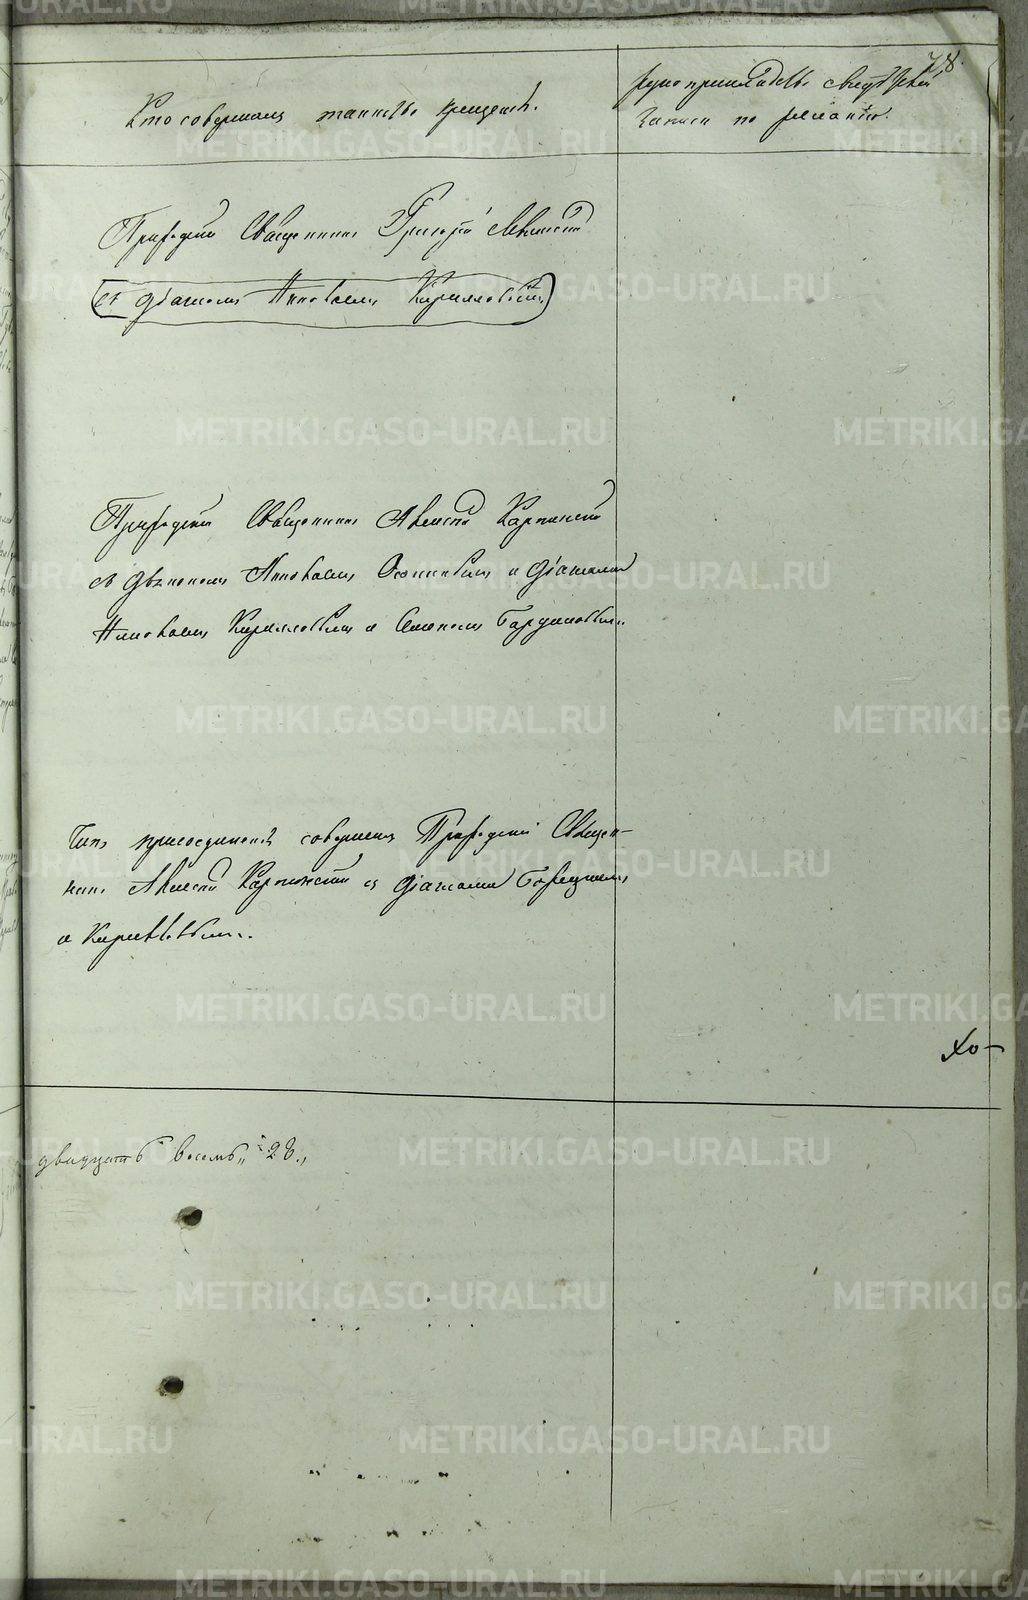 78.
Кто совершалъ таинство крещенія.
рукоприкладство свидѣтелей
записи по желанію.
Приходскій Священникъ Григорій
съ дьячкомъ Николаемъ Кирилловымъ
Приходскій Священникъ Алексѣй Карпинскій
съ дьякономъ Николаемъ и дьячками
Николаемъ Кирилловымъ и Симономъ
Чинъ присоединенія совершалъ Приходскій Священ-
никъ Алексѣй Карпинскій съ дьячками
и Кирилловымъ.
Хо-
двадцать восемь „28„
METRIKI.GASO-URAL.RU